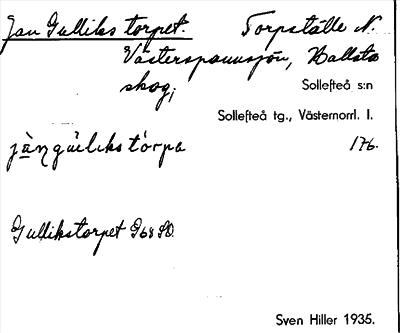 Jan Gulliks torpet. Torpställe N.
Västerspannsjön, Hallsta
skog; Sollefteå s:n
Sollefteå tg., Västernorrl. l.
jàngúlikstórpa 176.
Gullikstorpet G68SO
Sven Hiller 1935.